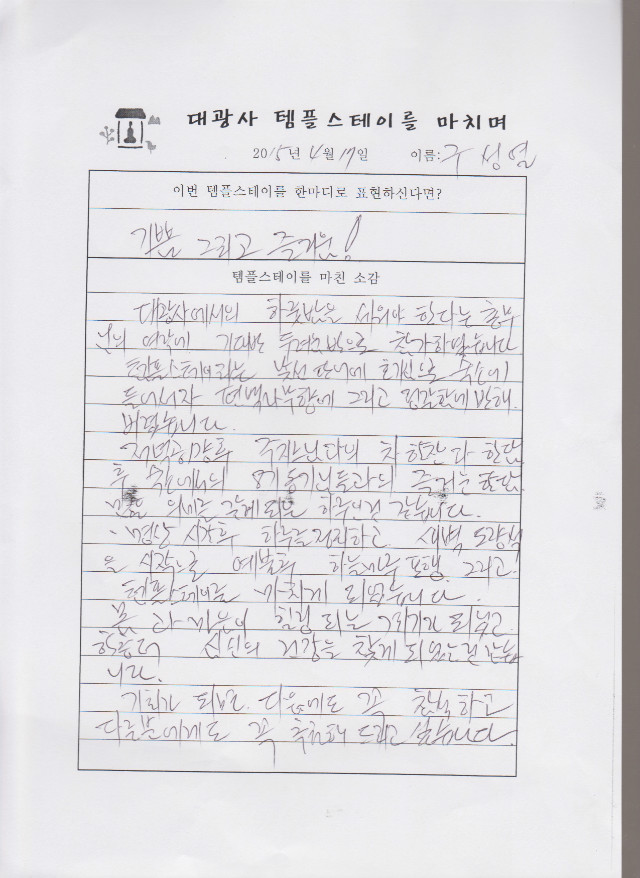 대광사 템플스테이를 마치며
2015년 4월 17일 이름: 구성열
이번 템플스테이를 한마디로 표현하신다면?
기쁨 그리고 즐거움!
템플스테이를 마친 소감
대광사에서의 하룻밤은 세워야 한다는 총무
님의 연락에 기대반 두려움반으로 참가하였습니다.
템플스테이라는 낯선 단어에 호기심으로 숙소에
들어서자 편백나무향에 그리고 정갈함에 반해
버렸습니다.
저녁공양후 주지스님과의 차 한잔과 한담
후 숙소에서의 8기 동기님들과의 즐거운 한담
하루인것 같습니다.
명상 시간후 하루를 정리하고 새벽 도량석
을 시작으로 예불후 포행 그리고
템플스테이를 마치게 되었습니다.
몸과 마음이 힐링 되는 계기가 되었고
한층더 심신의 건강을 찾게 되었는것 같습
니다.
기회가 되면 다음에도 꼭 참석하고
다른분에게도 꼭 추천해 드리고 싶습니다.